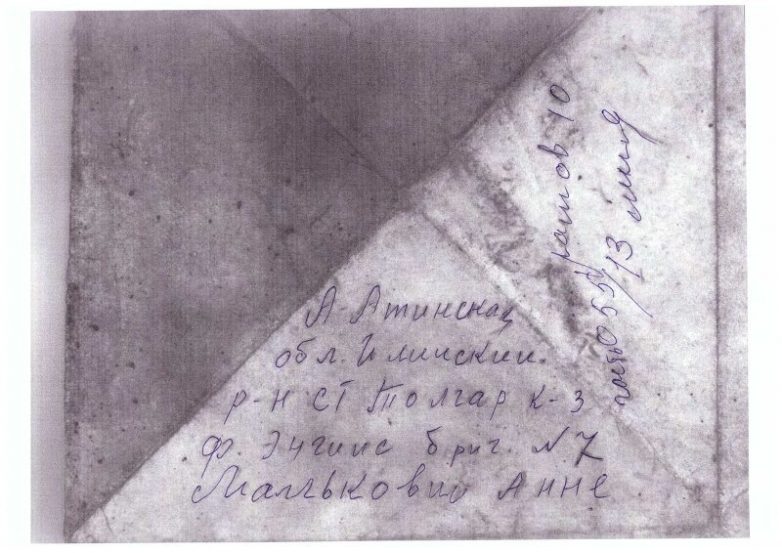 А-Атинская
обл. Илийский.
р-н ст Толгар к-з
ф. Энгиис бриг. N 7
Малькович Анне
10
13